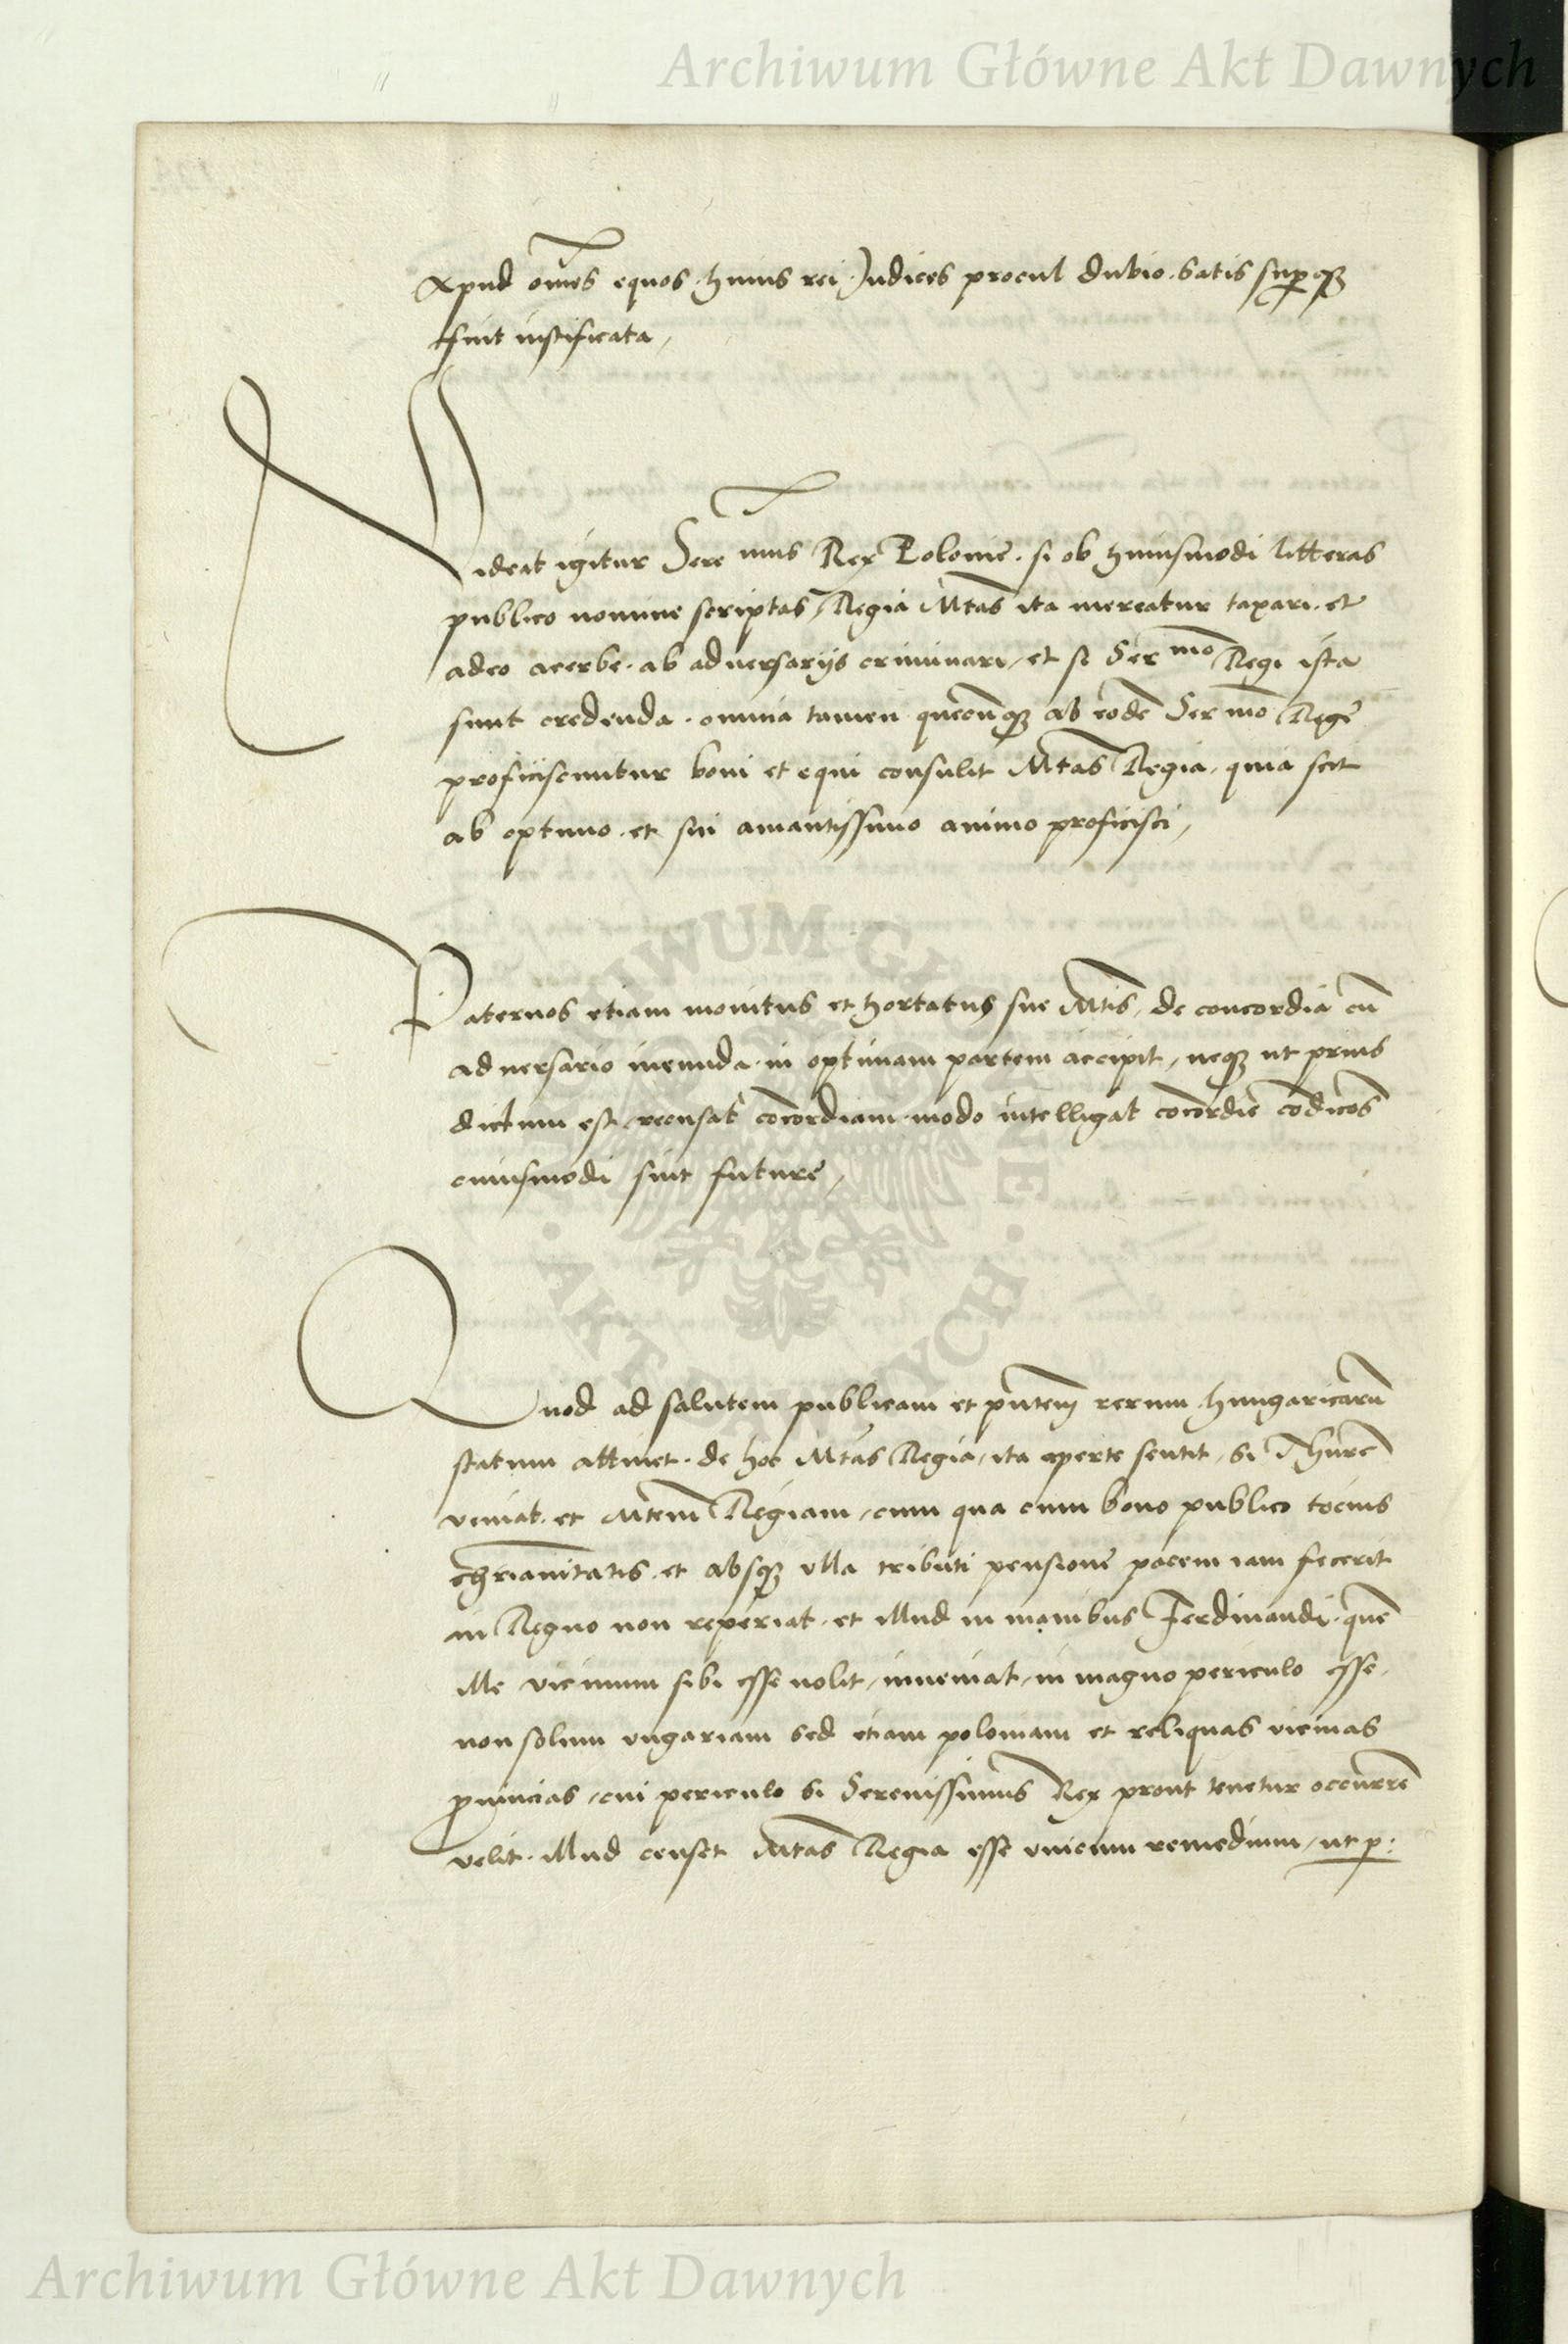 Archiwum Główne Akt Dawnych
Apud om̄es equos huius rei Iudices procul dubio satis supq̄ꝫ
sint iustificata,
Videat igitur Serenīmus Rex Polonie. si ob huiusmodi litteras
publico nomine scriptas, Regia Mtās ita mereatur taxari. et
adeo acerbe. ab adversarijs criminari, et si Ser mo Regi ista
sunt credenda. omnia tamen quecūqꝫ ab eodē Ser mo Rege
proficiscuntur boni et equi consulit Mtās Regia, quia scit
ab optimo. et sui amantissimo animo proficisci,
Paternos etiam monitus et hortatus sue Mtīs, de concordia cū
adversario ineunda. in optimam partem accipit, neqꝫ ut prius
dictum est. recusat cōcordiam. modo intelligat cōcordie cōdicōs
cuiusmodi sint future,
Quod ad salutem publicam et pn̄tem rerum hungaricarū
statum attinet. de hoc Mtās Regia, ita aperte sentit, si Thurc̄
veniat. et Mtēm Regiam, cum qua cum bono publico tocius
chr̄ianitatis. et absqꝫ ulla tributi pensione pacem iam fecerit
in Regno non reperiat. et illud in manibus Ferdinandi. quē
ille vicinum sibi esse nolit, inveniat, in magno periculo esse,
non solum ungariam sed etiam poloniam et reliquas vicinas
ꝓvincias, cui periculo si Serenissimus Rex prout tenetur occurrē
velit. illud censet Mtās Regia esse unicum remedium, ut p:
ARCHIWUM GŁÓWNE · AKT DAWNYCH ·
Archiwum Główne Akt Dawnych